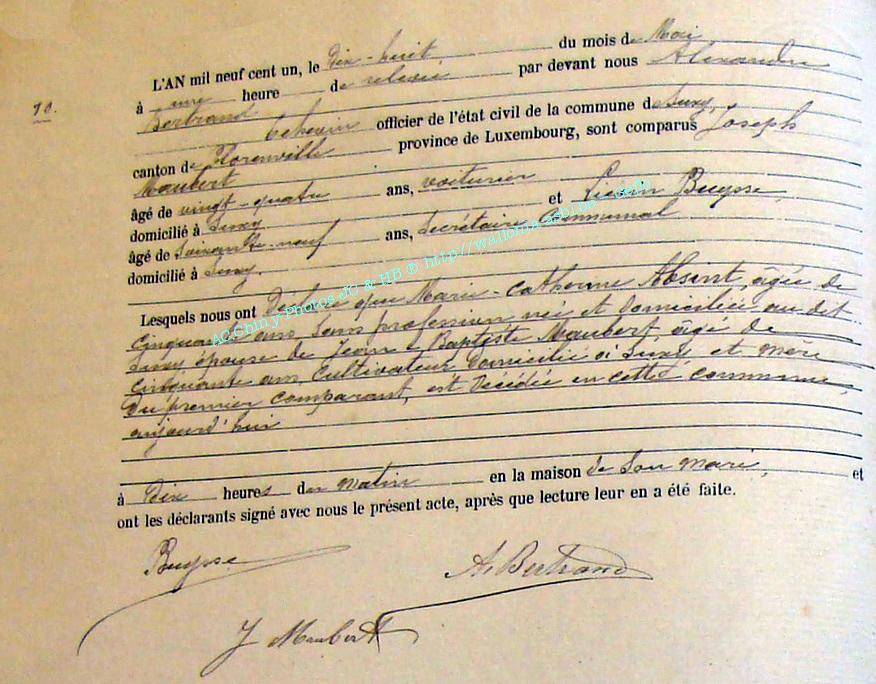 L'AN mil neuf cent un, le Dix-huit du mois de Mai
10.
à une heure de relevée par devant nous Alexandre
Bertrand échevin officier de l'état civil de la commune de Suxy,
canton de Florenville province de Luxembourg, sont comparus Joseph
Maubert
âgé de vingt-quatre ans, voiturier
domicilié à Suxy et Buysse,
âgé de soixante-neuf ans, Secrétaire Communal
domicilié à Suxy.
Lesquels nous ont Déclaré que Marie-Catherine Absint, agée de
Cinquante ans, Sans profession née et Domiciliée au dit
Suxy, épouse de Jean-Baptiste Maubert, agé de
Cinquante ans, Cultivateur Domicilié à Suxy, et mère
Du premier comparant, est Décédée en cette commune,
aujourd'hui
à Dix heures du Matin en la maison de Son mari, et
ont les déclarants signé avec nous le présent acte, après que lecture leur en a été faite.
Buysse
A. Bertrand
J Maubert
AC Chiny Photos JC & HB ®